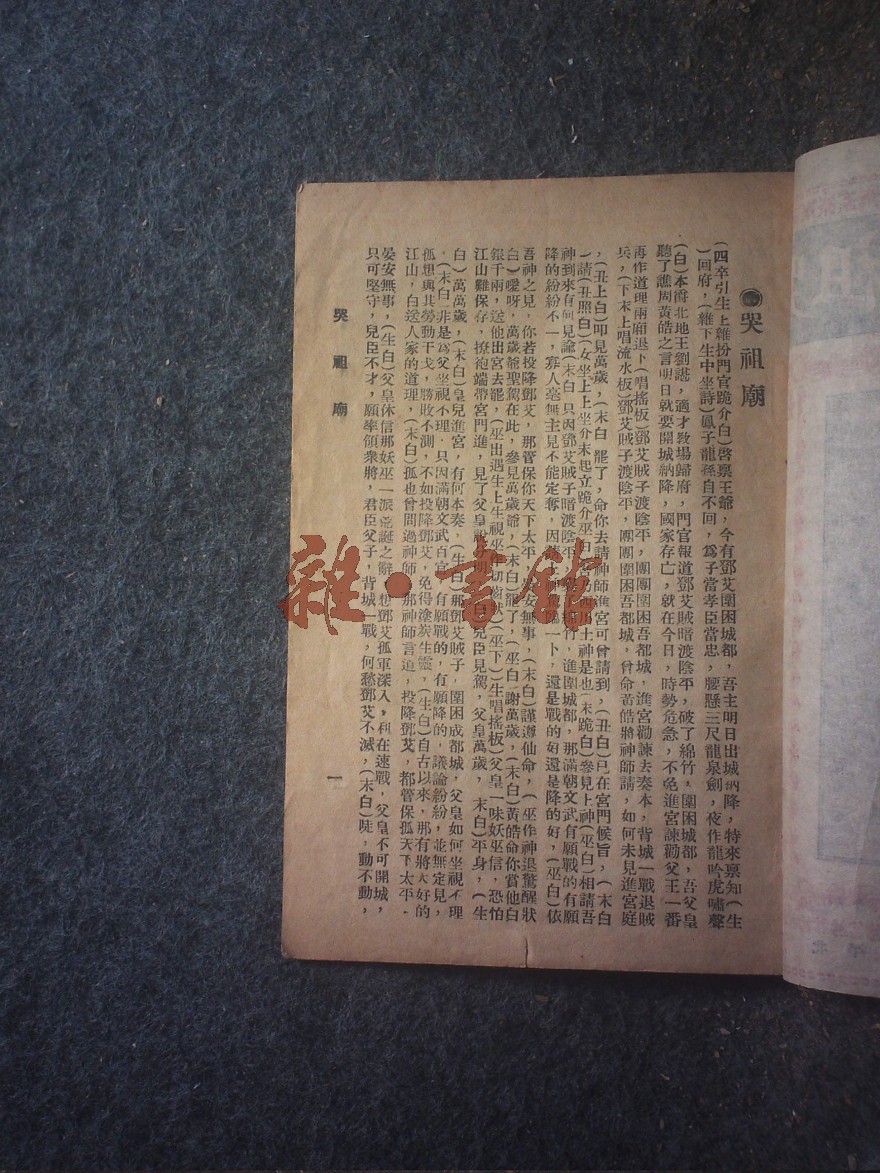 哭祖廟
(四卒引生上雜扮門官跪介白)啓禀王爺，今有鄧艾圍困城都，吾主明日出城納降，特來禀知(生
)回府，(雜下生中坐詩)鳳子龍孫自不回，爲子當孝臣當忠，腰懸三尺龍泉劍，夜作龍吟虎嘯聲
(白)本府北地王劉諶，適才敎場歸府，門官報道鄧艾賊暗渡陰平，破了綿竹，圍困城都，吾父皇
聽了譙周黃皓之言明日就要開城納降，國家存亡，就在今日，時勢危急，不免進宮諫勸父王一番
再作道理兩廂退卜(唱搖板)鄧艾賊子渡陰平，團團圍困吾都城，進宮勸諫去奏本，背城一戰退賊
兵，(下末上唱流水板)鄧艾賊子渡陰平，團團圍困吾都城，曾命黃皓將神師請，如何未見進宮庭
，(丑上白)叩見萬歲，(末白)罷了，命你去請神師進宮可曾請到，(丑白)已在宮門候旨，(末白
)請(丑照白)(女坐上上坐介末起立跪介巫白)吾乃西川土神是也(末跪白)參見上神(巫白)相請吾
神到來有何見諭(末白)只因鄧艾賊子暗渡陰平，綿竹，進圍城都，那滿朝文武有願戰的有願
降的紛紛不一，寡人毫無主見不能定奪，因一卜，還是戰的好還是降的好，(巫白)依
吾神之見，你若投降鄧艾，那管保你天下太平，安無事，(末白)謹遵仙命，(巫作神退驚醒狀
白)噯呀，萬歲爺聖駕在此，參見萬歲爺，(末白)罷了，(巫白)謝萬歲，(末白)黃皓命你賞他白
銀千兩，送他出宮去罷，(巫出遇生上生視巫切齒)(巫下)(生唱搖板)父皇一味妖巫信，恐怕
江山難保存，撩袍端帶宮門進，見了父皇說分明，(白)兒臣見駕，父皇萬歲，(末白)平身，(生
白)萬萬歲，(末白)皇兒進宮，有何本奏，(生白)那鄧艾賊子，圍困成都城，父皇如何坐視不理
，(末白)非是爲父坐視不理，只因滿朝文武百官，有願戰的，有願降的，議論紛紛，並無定見，
孤想與其勞動干戈，勝敗不測，不如投降鄧艾，免得塗炭生靈，(生白)自古以來，那有將大好的
江山，白送人家的道理，(末白)孤也曾問過神師，那神師言道，投降鄧艾，都管保孤天下太平，
晏安無事，(生白)父皇休信那妖巫一派荒誕之辭，想鄧艾孤軍深入，利在速戰，父皇不可開城，
只可堅守，兒臣不才，願率領衆將，君臣父子，背城一戰，何愁鄧艾不滅，(末白)唗，動不動，
哭祖廟
一
雜·書館